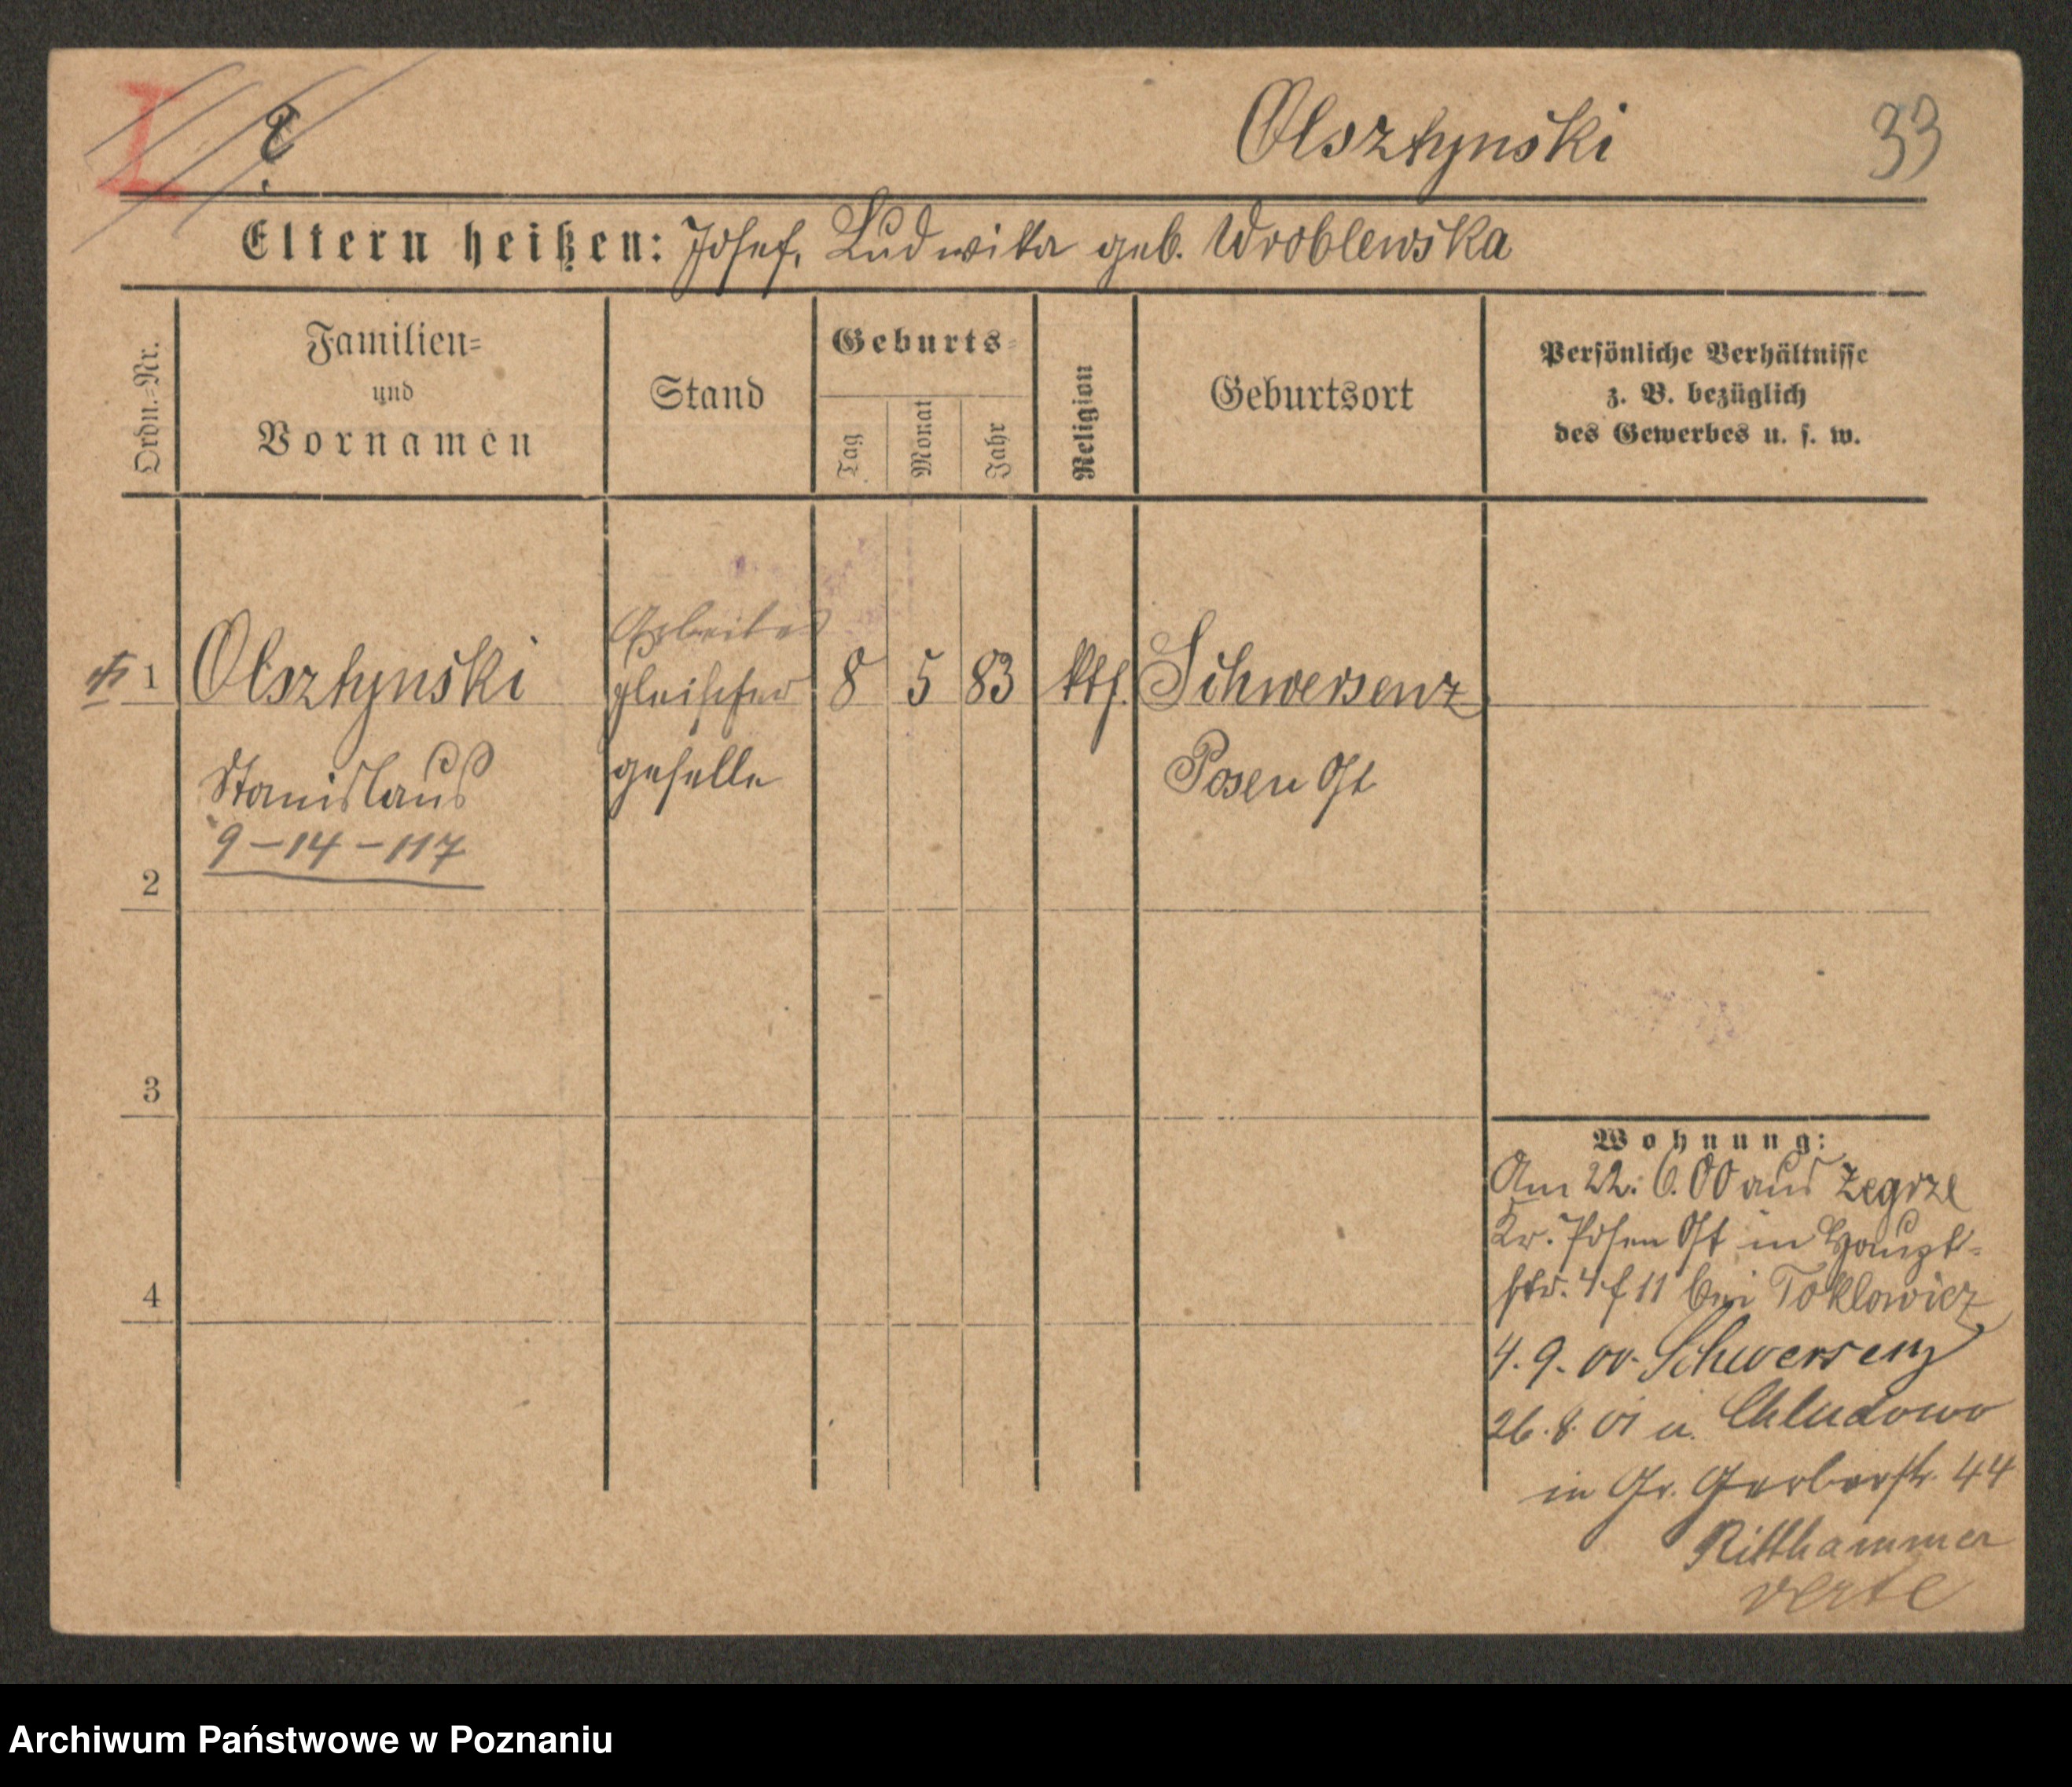 I ?
Olsztyński 33
Eltern heißen: Josef, Ludwika geb. Wroblewska
Ordn.-Nr.
Familien-
und
Vornamen
Stand
Geburts-
Tag
Monat
Jahr
Religion
Geburtsort
Persönliche Verhältnisse
z. B. bezüglich
des Gewerbes u. s. w.
Arbeiter
1 Olsztyński Fleischer 8 5 83 kth. Schwersenz
Stanislaus geselle Posen Ost
9-14-117
2
3
4
Wohnung:
Am 22. 6. 00 aus Zegrze
Kr. Posen Ost in Haupt-
str. 4 f 11 bei Toklowicz
4. 9. 00. Schwersenz
26. 8. 01 u. Chludowo
in Gr. Gerberstr. 44
Ritthammer
verte
Archiwum Państwowe w Poznaniu